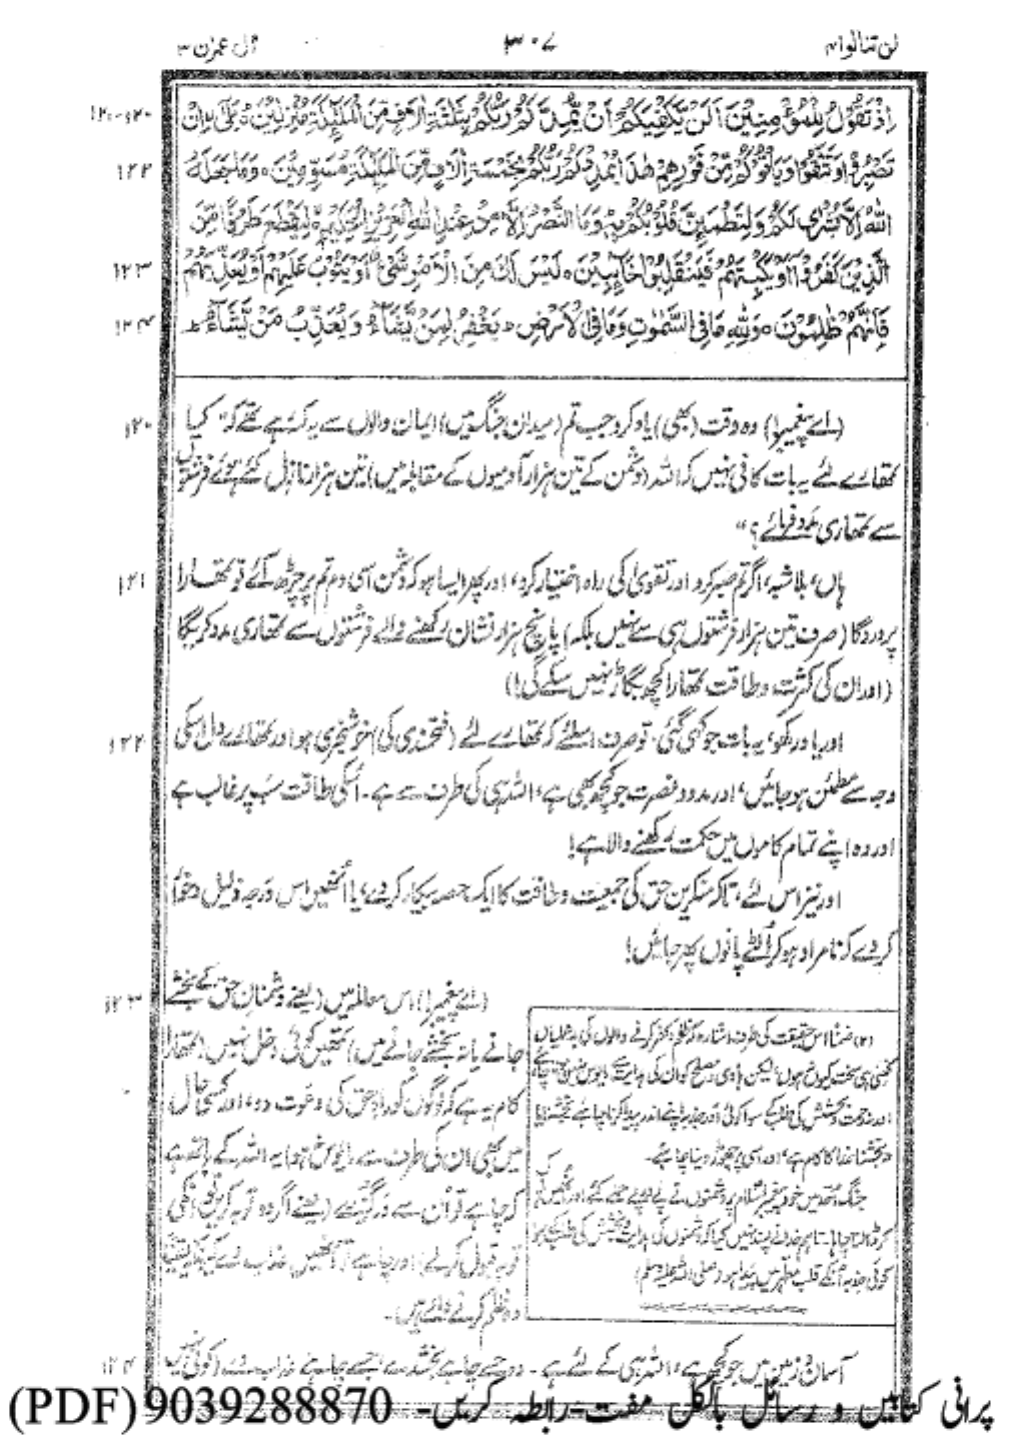 لن تنالوا۴
۳۰۷
آل عمرٰن ۳
۱۲۰-۱۲۱
اِذْ تَقُوْلُ لِلْمُؤْمِنِيْنَ اَلَنْ يَّكْفِيَكُمْ اَنْ يُّمِدَّكُمْ رَبُّكُمْ بِثَلٰثَةِ اٰلَافٍ مِّنَ الْمَلٰٓئِكَةِ مُنْزَلِيْنَ ہ بَلٰٓى اِنْ
۱۲۲
تَصْبِرُوْا وَتَتَّقُوْا وَيَاْتُوْكُمْ مِّنْ فَوْرِهِمْ هٰذَا يُمْدِدْكُمْ رَبُّكُمْ بِخَمْسَةِ اٰلَافٍ مِّنَ الْمَلٰٓئِكَةِ مُسَوِّمِيْنَ ہ وَمَا جَعَلَهُ
اللّٰهُ اِلَّا بُشْرٰى لَكُمْ وَلِتَطْمَئِنَّ قُلُوْبُكُمْ بِهٖ وَمَا النَّصْرُ اِلَّا مِنْ عِنْدِ اللّٰهِ الْعَزِيْزِ الْحَكِيْمِ لِيَقْطَعَ طَرَفًا مِّنَ
۱۲۳
الَّذِيْنَ كَفَرُوْٓا اَوْ يَكْبِتَهُمْ فَيَنْقَلِبُوْا خَآئِبِيْنَ ہ لَيْسَ لَكَ مِنَ الْاَمْرِ شَیْءٌ اَوْ يَتُوْبَ عَلَيْهِمْ اَوْ يُعَذِّبَهُمْ
۱۲۴
فَاِنَّهُمْ ظٰلِمُوْنَ ہ وَلِلّٰهِ مَا فِی السَّمٰوٰتِ وَمَا فِی الْاَرْضِ ؕ يَغْفِرُ لِمَنْ يَّشَآءُ وَيُعَذِّبُ مَنْ يَّشَآءُ ؕ
۱۲۰
(اے پیغمبر!) وہ وقت (بھی) یاد کرو جب تم (میدان جنگ میں) ایمان والوں سے یہ کہہ رہے تھے کہ "کیا
تمھارے لئے یہ بات کافی نہیں کہ اللہ (دشمن کے تین ہزار آدمیوں کے مقابلہ میں) تین ہزار نازل کئے ہوئے فرشتوں
سے تمھاری مدد فرمائے؟"
۱۲۱
ہاں، بلا شبہ، اگر تم صبر کرو اور تقویٰ کی راہ اختیار کرو، اور پھر ایسا ہو کہ دشمن اسی دم تم پر چڑھ آئے تو تمھارا
پروردگار (صرف تین ہزار فرشتوں ہی سے نہیں بلکہ) پانچ ہزار نشان رکھنے والے فرشتوں سے تمھاری مدد کریگا
(اور ان کی کثرت و طاقت تمھارا کچھ بگاڑ نہیں سکے گی!)
۱۲۲
اور یاد رکھو، یہ بات جو کہی گئی، تو صرف اسلئے کہ تمھارے لئے (فتحمندی کی) خوشخبری ہو اور تمھارے دل اسکی
وجہ سے مطمئن ہو جائیں، اور مدد و نصرت جو کچھ بھی ہے، اللہ ہی کی طرف سے ہے۔ اُسکی طاقت سب پر غالب ہے
اور وہ اپنے تمام کاموں میں حکمت رکھنے والا ہے!
اور نیز اس لئے، تاکہ منکرین حق کی جمعیت و طاقت کا ایک حصہ بیکار کر دے، یا اُنھیں اس درجہ ذلیل و خوار
کر دے کہ نامراد ہو کر اُلٹے پانوں پھر جائیں!
۱۲۳
(اے پیغمبر!) اس معاملہ میں (یعنے دشمنانِ حق کے بخشے
جانے یا نہ بخشے جانے میں) تمھیں کوئی دخل نہیں، تمھارا
کام یہ ہے کہ لوگوں کو راہِ حق کی دعوت دو، اور کسی حال
میں بھی ان کی طرف سے مایوس نہ ہو) یہ اللہ کے ہاتھ ہے
کہ چاہے تو اُن سے درگزرے (یعنے اگر وہ توبہ کریں تو اُنکی
توبہ قبول کر لے) اور چاہے تو اُنھیں عذاب دے کیونکہ یقیناً
وہ ظلم کرنے والے ہیں۔
(۲) ضمناً اس حقیقت کی طرف اشارہ کہ ظلم و کفر کرنے والوں کی بدعملیاں
کتنی ہی سخت کیوں نہ ہوں، لیکن ہادی و مصلح کو ان کی ہدایت سے مایوس نہیں ہونا چاہئے
اور رحمت و بخشش کی طلب کے سوا کوئی اور جذبہ اپنے اندر پیدا کرنا نہ چاہئے بخشنا یا
نہ بخشنا خدا کا کام ہے، اور اسی پر چھوڑ دینا چاہئے۔
جنگ اُحد میں خود پیغمبر اسلام پر دشمنوں نے پے در پے حملے کئے اور انھیں زخمی
کر ڈالنا چاہا۔ تاہم خدا نے پسند نہیں کیا کہ دشمنوں کی ہدایت و بخشش کی طلب کے سوا
کوئی جذبہ اُنکے قلب مطہر میں پیدا ہو (صلی اللہ علیہ وسلم)
۱۲۴
آسمان و زمین میں جو کچھ ہے، اللہ ہی کے لئے ہے۔ وہ جسے چاہے بخشدے جسے چاہے عذاب دے (کوئی نہیں
پرانی کتابیں و رسائل بالکل مفت۔ رابطہ کریں۔ 9039288870 (PDF)